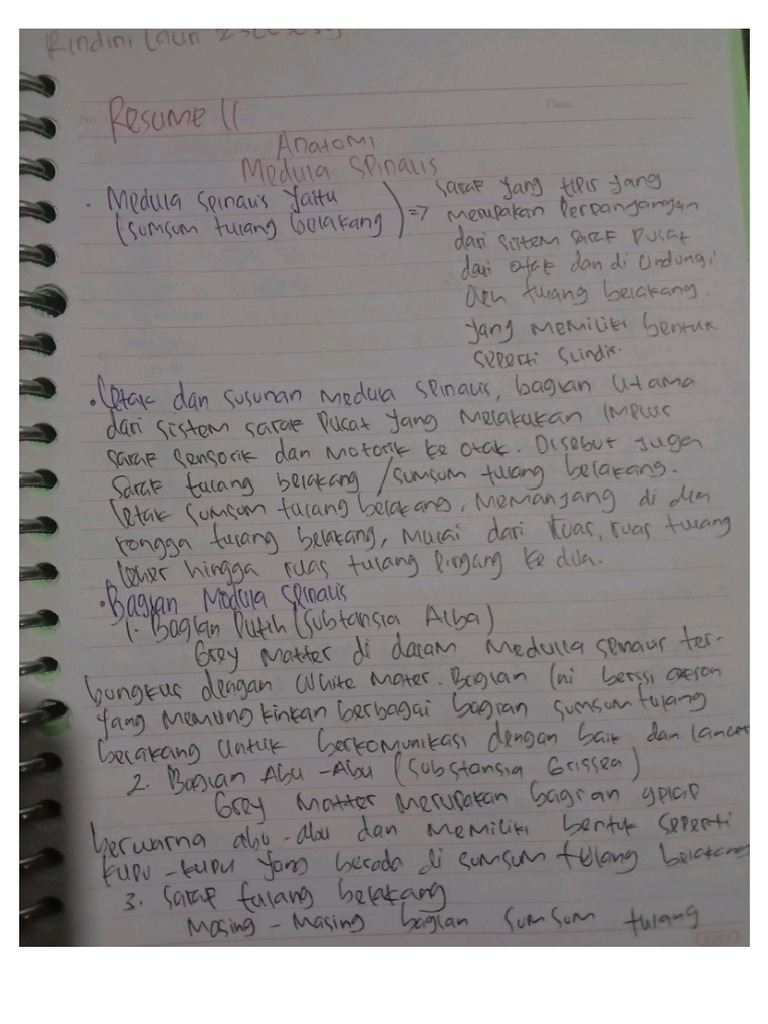 Rindini
No.
Date
Resume 11
Anatomi
Medula Spinalis
• Medula spinalis yaitu
(sumsum tulang belakang) =>
saraf yang tipis yang
merupakan perpanjangan
dari sistem saraf pusat
dari otak dan di lindungi
oleh tulang belakang.
yang memiliki bentuk
seperti slindir.
• Letak dan susunan Medula spinalis, bagian utama
dari sistem saraf pusat yang melakukan impuls
saraf sensorik dan motorik ke otak. Disebut juga
saraf tulang belakang / sumsum tulang belakang.
letak sumsum tulang belakang, memanjang di dlm
rongga tulang belakang, mulai dari ruas, ruas tulang
leher hingga ruas tulang pingang ke dua.
• Bagian Modula spinalis
1. Bagian Putih (Subtansia Alba)
Grey Matter di dalam Medulla spinalis ter-
bungkus dengan White Mater. Bagian ini berisi akson
yang memungkinkan berbagai bagian sumsum tulang
belakang untuk berkomunikasi dengan baik dan lancar
2. Bagian Abu-Abu (Substansia Grissea)
Grey Matter merupakan bagian gelap
berwarna abu-abu dan memiliki bentuk seperti
kupu-kupu yang berada di sumsum tulang belakang
3. Saraf tulang belakang
Masing-Masing bagian sumsum tulang